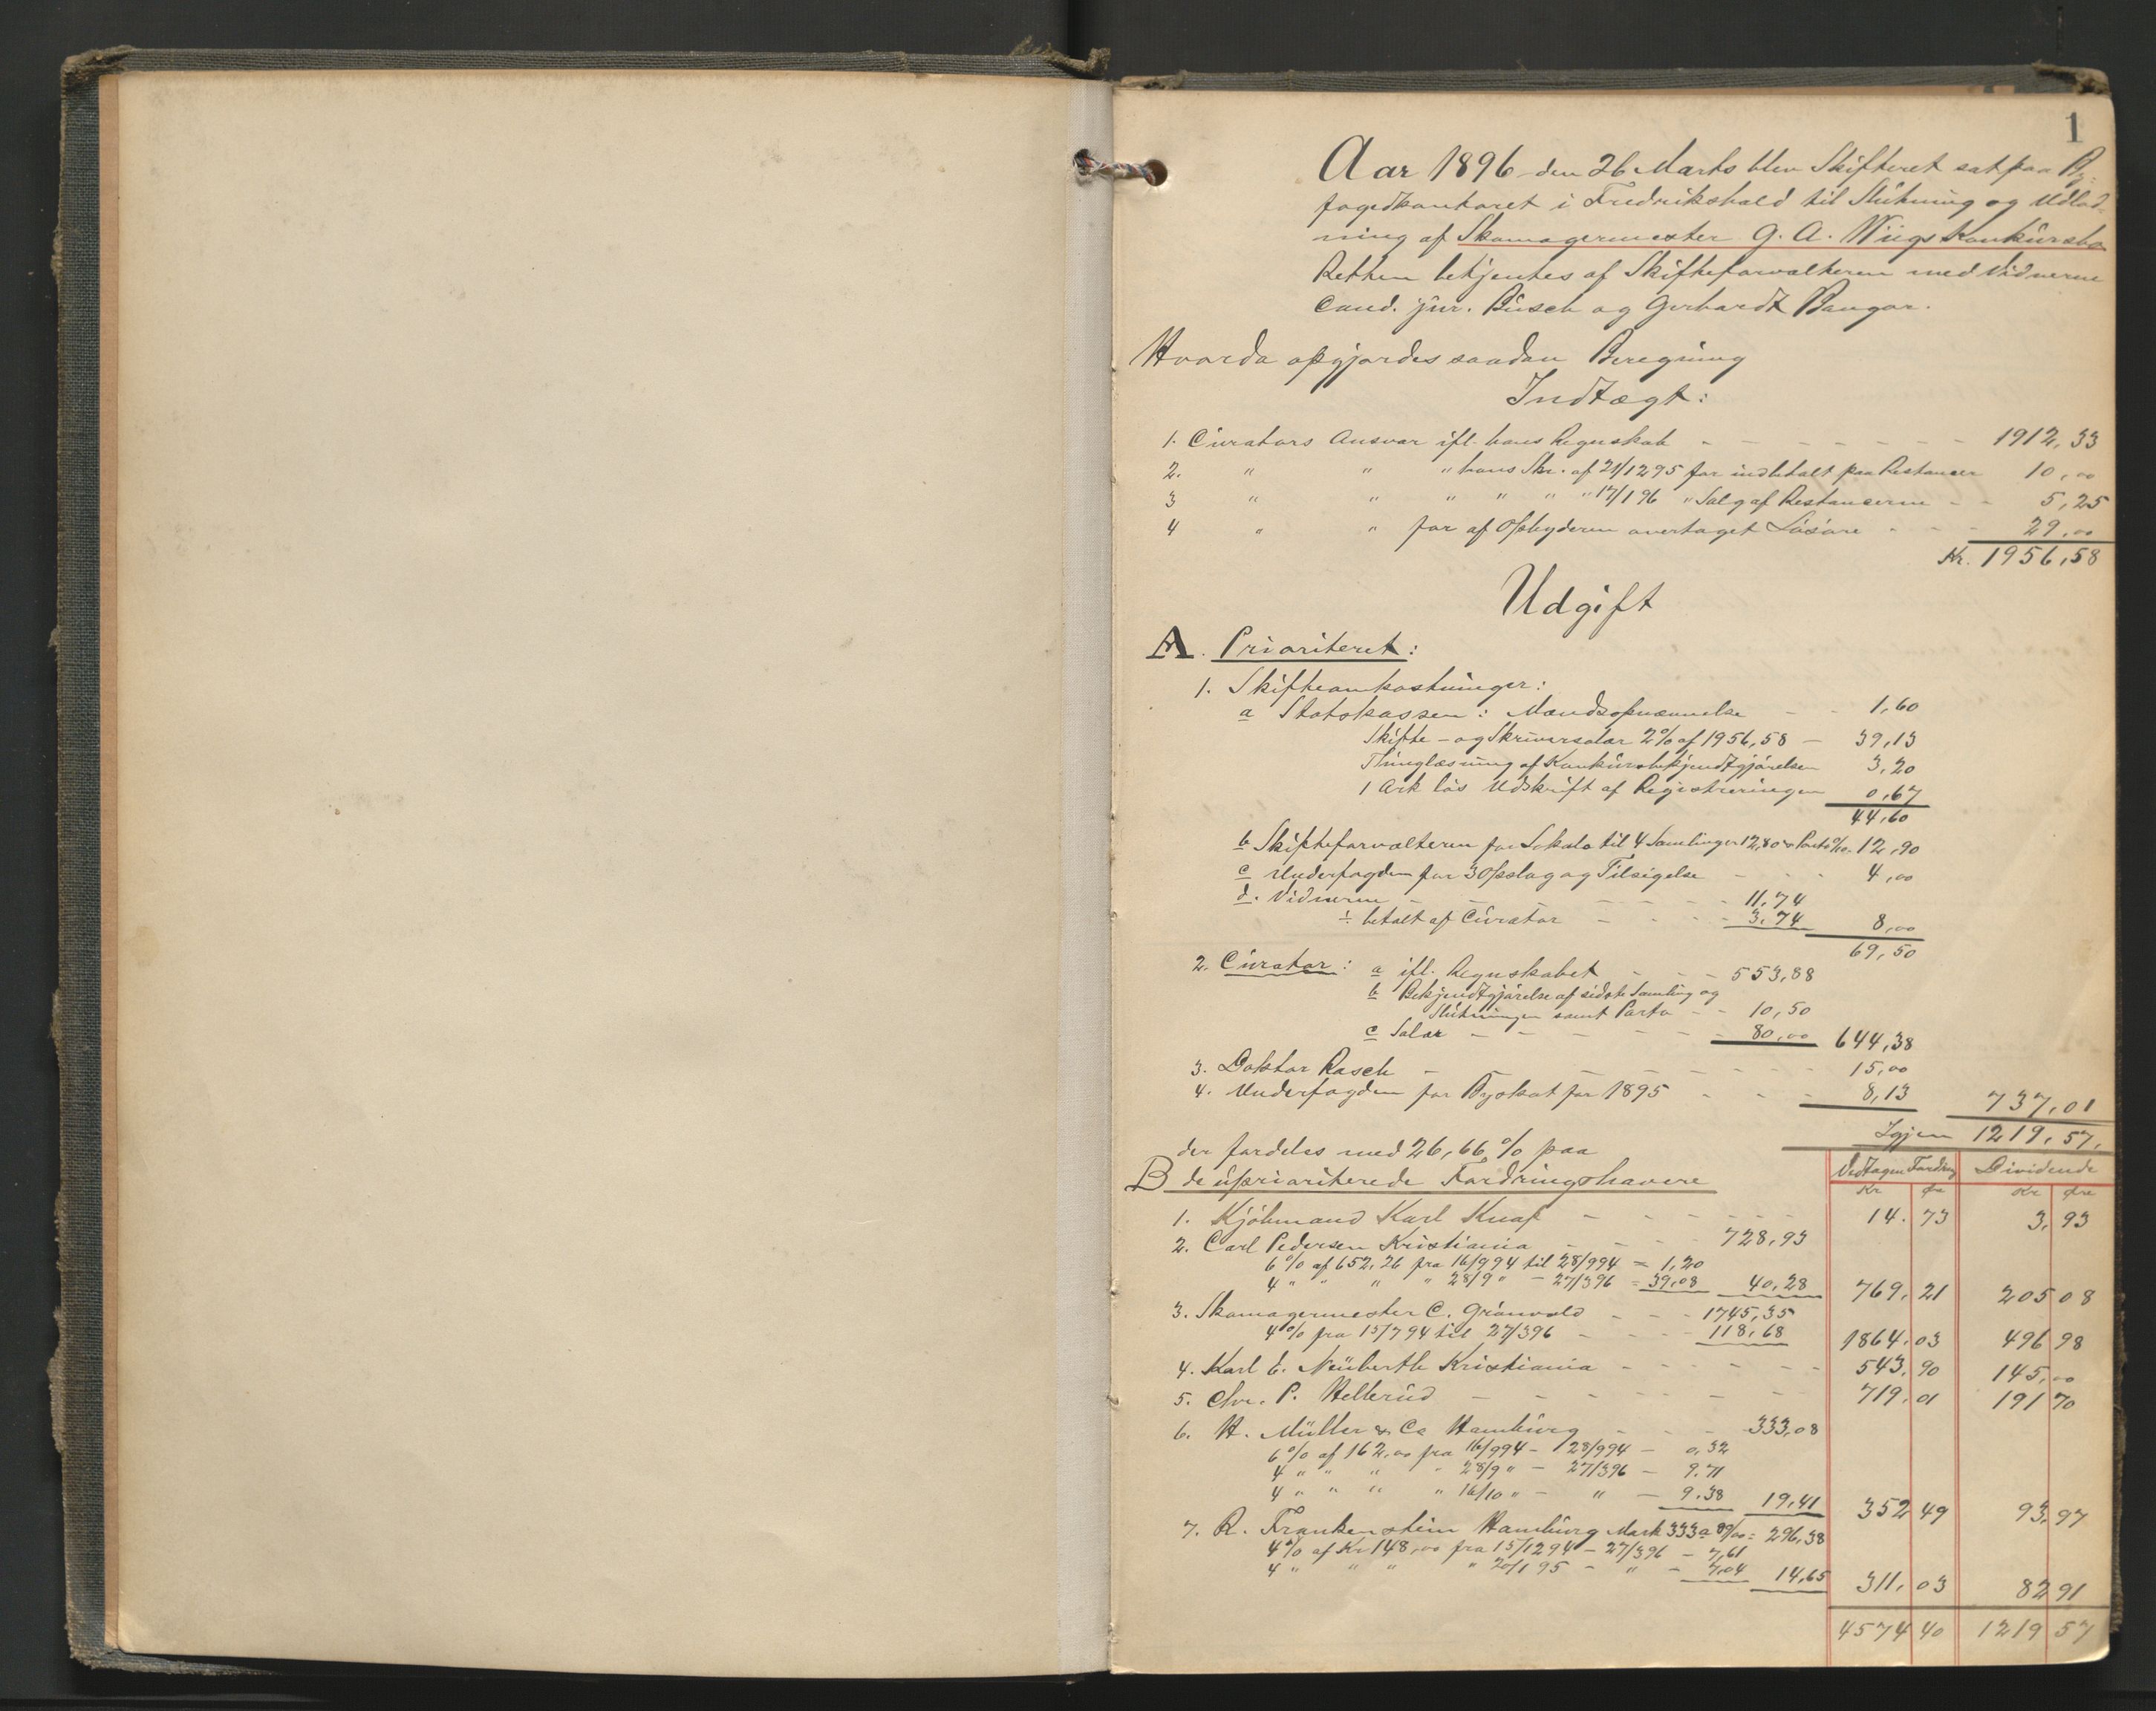 1
Aar 1896 den 26 Marts blev Skifteret sat paa By-
fogedkontoret i Fredrikshald til Slutning og Udlod-
ning af Skomagermester G. A. Wiigs Konkursbo
Retten betjentes af Skifteforvalteren med Vidnerne
Cand. jur. Busch og Gerhardt Bangor.
Hvorda opgjordes saadan Beregning
Indtægt:
1. Curators Ansvar ifl. hans Regnskab - - - - - - - 1912,33
2. " " " hans Skr. af 21/12 95 for indbetalt paa Restancer 10,00
3 " " " " " " 17/1 96 " Salg af Restancerne - - 5,25
4 " " for af Opbyderen overtaget Løsøre - - - 29,00
Kr. 1956,58
Udgift
A. Prioriteret:
1. Skifteomkostninger:
a Statskassen: Mændsopnævnelse - - 1,60
Skifte- og Skriversalær 2% af 1956,58 - 39,13
Thinglæsning af Konkursbekjendtgjørelsen 3,20
1 Ark løs Udskrift af Registreringen 0,67
44,60
b Skifteforvalteren for Lokale til 4 Samlinger 12,80 & Porto 0/10. 12,90
c Underfogden for 3 Opslag og Tilsigelse - - - 4,00
d. Vidnerne - - - - - - 11,74
÷ betalt af Curator - - - - 3,74 8,00
69,50
2. Curator: a ifl. Regnskabet - - - 553,88
b Bekjendtgjørelse af sidste Samling og
Slutningen samt Porto - - 10,50
c Salær - - - - - 80,00 644,38
3. Doktor Rasch - - - - - - 15,00
4. Underfogden for Byskat for 1895 - - - 8,13 737,01
Igjen 1219,57.
der fordeles med 26,66 % paa
B de uprioriterede Fordringshavere
Vedtagen Fordring Dividende
Kr Øre Kr Øre
1. Kjøbmand Karl Knap - - - - - - 14.73 3,93
2. Carl Pedersen Kristiania - - - - 728,93
6 % af 652,26 fra 16/9 94 til 28/9 94 = 1,20
4 " " " " 28/9 " - 27/3 96 = 39,08 40,28 769,21 205 08
3. Skomagermester C. Grønvold - - - 1745,35
4 % fra 15/7 94 til 27/3 96 - - - - 118,68 1864,03 496 98
4. Karl E. Neuberth Kristiania - - - - - - 543,90 145,00
5. Chr. P. Hellerud - - - - - - - 719,01 191 70
6. H. Müller & Co Hamburg - - - 333,08
6 % af 162,00 fra 16/9 94 - 28/9 94 - 0,32
4 " " " " 28/9 " - 27/3 96 - 9.71
4 " " " " 16/10 " - " - 9.38 19,41 352 49 93,97
7. R. Frankenstein Hamburg Mark 333 a 89/00 = 296,38
4 % af Kr 148,00 fra 15/12 94 - 27/3 96 - 7,61
4 " " " " 20/1 95 - " - 7,04 14,65 311,03 82 91
4574 40 1219 57